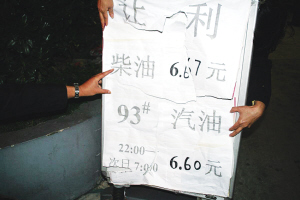 让利
柴油 6.67元
93# 汽油
22:00—
次日7:00 6.60元